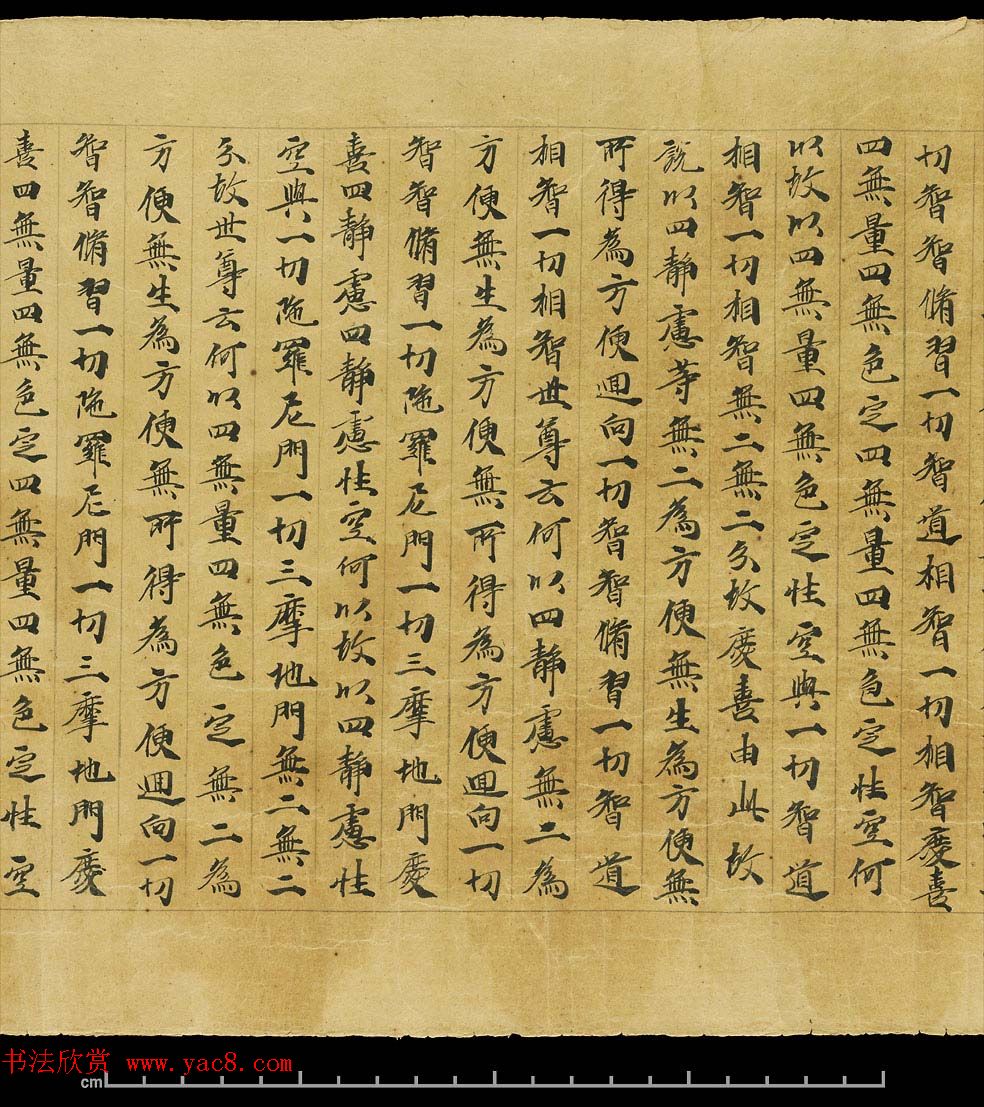 切智智脩習一切智道相智一切相智慶喜
四無量四無色定四無量四無色定性空何
以故以四無量四無色定性空與一切智道
相智一切相智無二無二分故慶喜由此故
說以四靜慮等無二為方便無生為方便無
所得為方便迴向一切智智脩習一切智道
相智一切相智世尊云何以四靜慮無二為
方便無生為方便無所得為方便迴向一切
智智脩習一切陁羅尼門一切三摩地門慶
喜四靜慮四靜慮性空何以故以四靜慮性
空與一切陁羅尼門一切三摩地門無二無二
分故世尊云何以四無量四無色定無二為
方便無生為方便無所得為方便迴向一切
智智脩習一切陁羅尼門一切三摩地門慶
喜四無量四無色定四無量四無色定性空
书法欣赏 www.yac8.com
cm